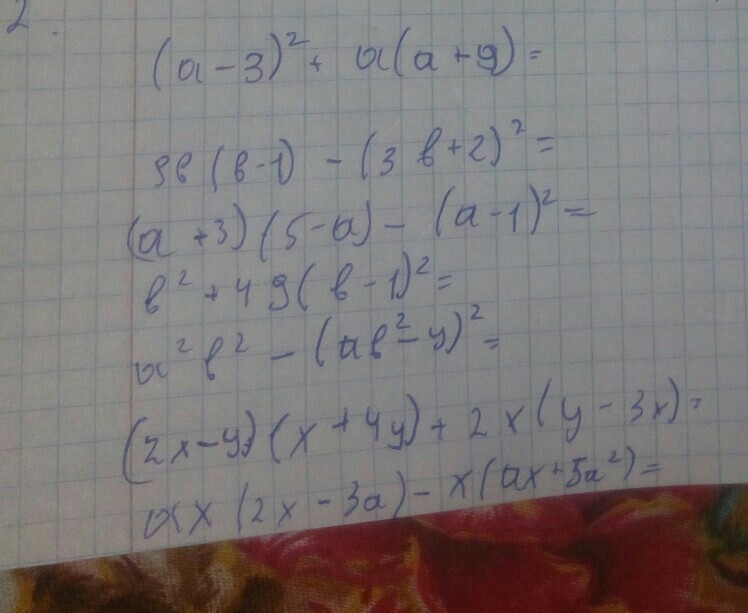 2.
(a-3)² + a(a+9) =
9в(в-1) - (3в+2)² =
(a+3)(5-a) - (a-1)² =
в² + 49(в-1)² =
a²в² - (aв² - y)² =
(2x-y)(x+4y) + 2x(y-3x) =
ax(2x-3a) - x(ax+5a²) =